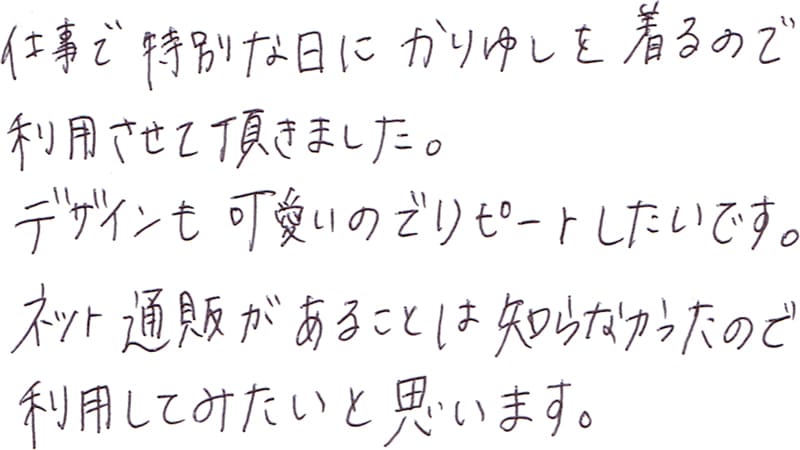 仕事で特別な日にかりゆしを着るので
利用させて頂きました。
デザインも可愛いのでリピートしたいです。
ネット通販があることは知らなかったので
利用してみたいと思います。